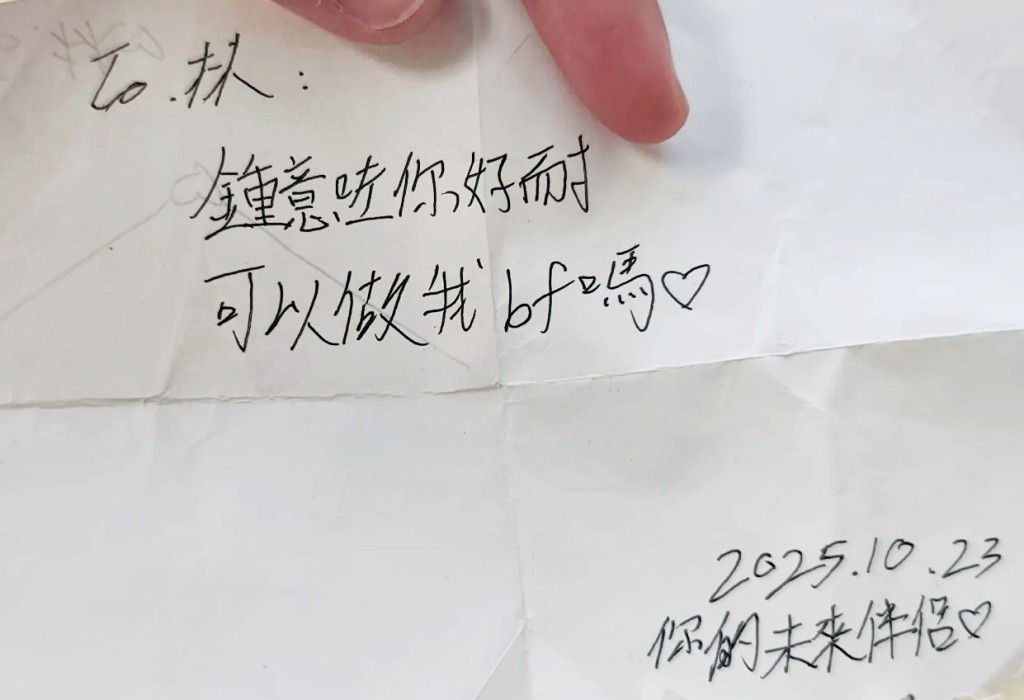 To.林:
鍾意咗你好耐
可以做我bf嗎♡
2025.10.23
你的未來伴侶♡